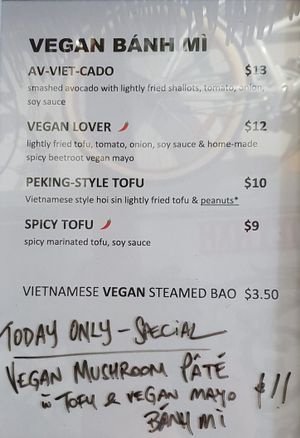 VEGAN BÁNH MÌ
AV-VIET-CADO $13
smashed avocado with lightly fried shallots, tomato, onion,
soy sauce
VEGAN LOVER $12
lightly fried tofu, tomato, onion, soy sauce & home-made
spicy beetroot vegan mayo
PEKING-STYLE TOFU $10
Vietnamese style hoi sin lightly fried tofu & peanuts*
SPICY TOFU $9
spicy marinated tofu, soy sauce
VIETNAMESE VEGAN STEAMED BAO $3.50
TODAY ONLY - SPECIAL
VEGAN MUSHROOM PÂTÉ
w TOFU & VEGAN MAYO $11
BÁNH MÌ